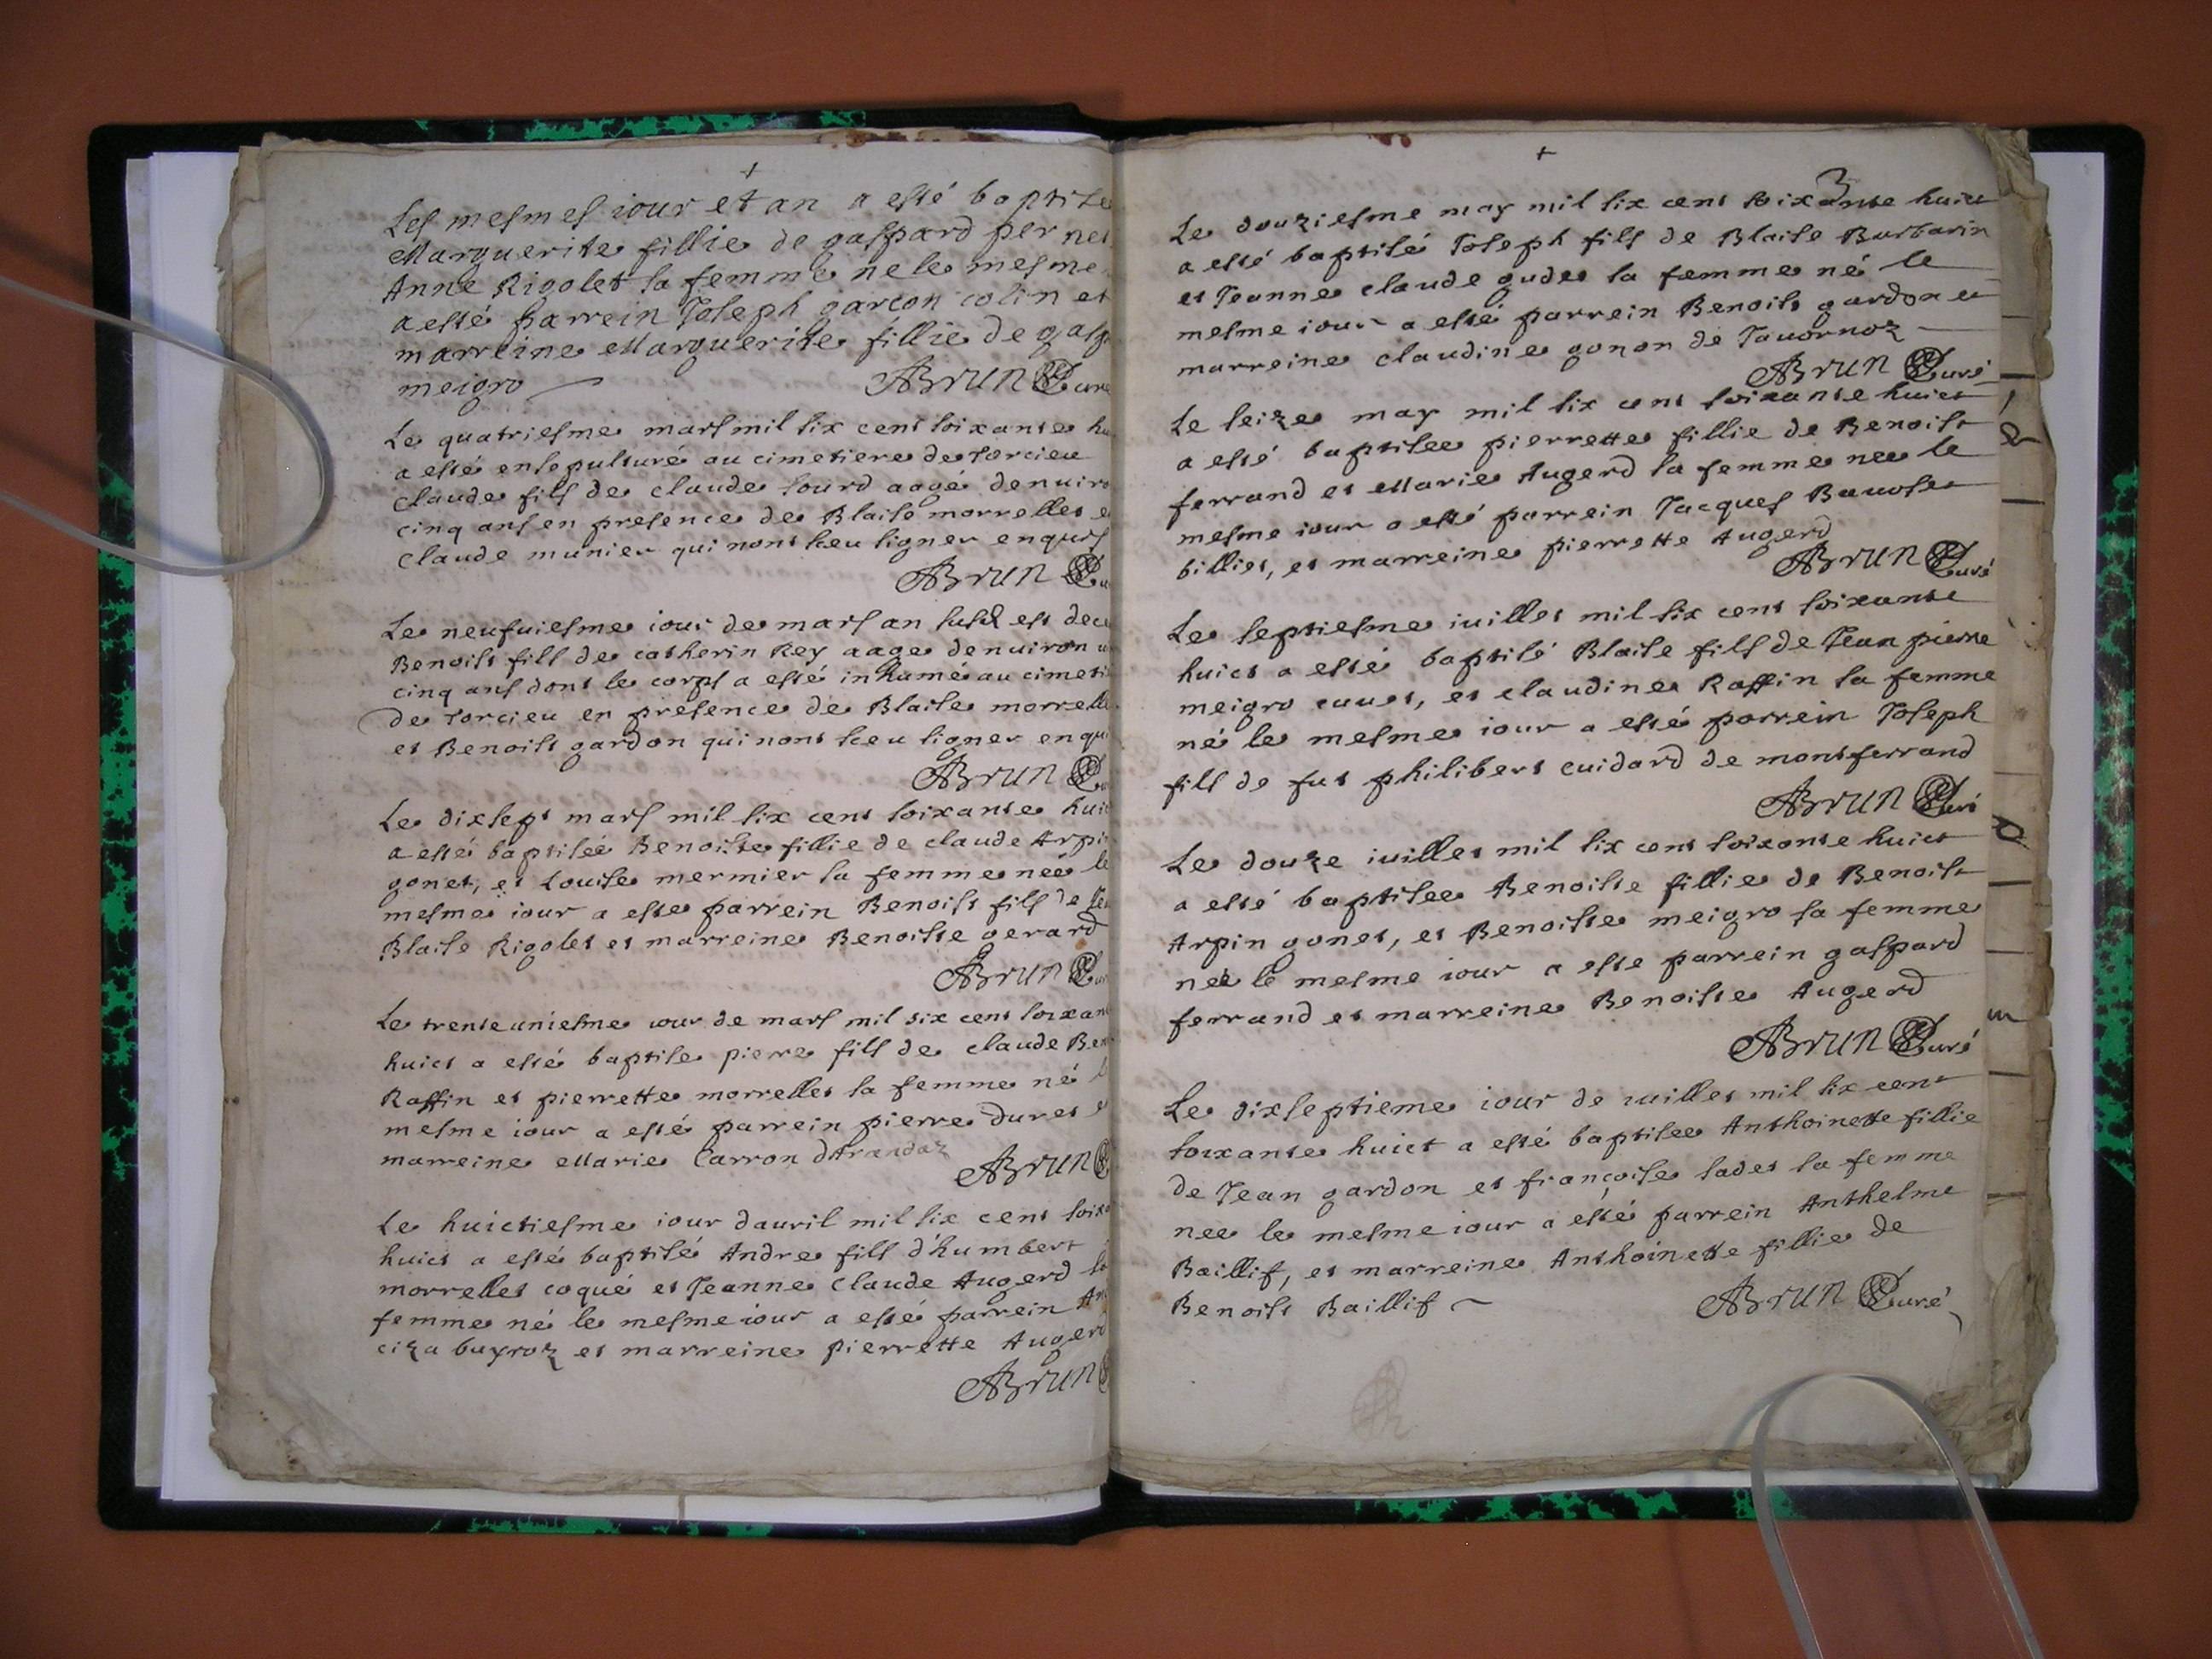 +
Les mesmes iour et an a esté baptise
Marguerite fillie de gaspard pernet
Anne Rigolet sa femme nele mesme
a esté parrein Joseph garcon colin et
marreine Marguerite fillie de gasp
meigro ABrun Curé
Le quatriesme mars mil six cent soixante hu
a esté ensepulturé au cimetiere de Torcieu
Claude fils de claude lourd aagé denuiro
cinq ans en presence de Blaise morrellet e
Claude munier qui nont sceu signer enquis
ABrun Cu
Le neufuiesme iour de mars an susd est dece
Benoist fils de catherin Rey aage denuiron
cinq ans dont le corps a esté inhumé au cimeti
de Torcieu en presence de Blaise morrelle
et Benoist gardon qui nont sceu signer enqui
ABrun C
Le dixsept mars mil six cent soixante huic
a esté baptisée Benoiste fillie de claude Arpi
gonet, et Louise mermier sa femme née le
mesme iour a este parrein Benoist fils de
Blaise Rigolet et marreine Benoiste gerard
ABrun Cu
Le trente uniesme iour de mars mil six cent soixan
huict a esté baptise piere fils de claude Ben
Raffin et pierrette morrellet sa femme né l
mesme iour a esté parrein pierre Duret e
marreine Marie Carron dArandaz
ABrun C
Le huictiesme iour dauril mil six cent soixa
huict a esté baptisé Andre fils d'humbert
morrellet coqué et Jeanne Claude Augerd sa
femme né le mesme iour a esté parrein An
ciza buyroz et marreine pierrette Augerd
ABrun C
+
3
Le douziesme may mil six cent soixante huict
a esté baptisé Joseph fils de Blaise Burbarin
et Jeanne claude gudet sa femme né le
mesme iour a esté parrein Benoist gardon et
marreine claudine gonon de Tauornoz
ABrun Curé
Le seize may mil six cent soixante huict
a esté baptisee pierrette fillie de Benoist
ferrand et Marie Augerd sa femme nee le
mesme iour a esté parrein Jacques
billiet, et marreine pierrette Augerd
ABrun Curé
Le septiesme iuillet mil six cent soixante
huict a esté baptisé Blaise fils de Jean pierre
meigro cuuet, et claudine Raffin sa femme
né le mesme iour a esté parrein Joseph
fils de fut philibert cuidard de montferrand
ABrun Curé
Le douze iuillet mil six cent soixante huict
a esté baptisee Benoiste fillie de Benoist
Arpin gonet, et Benoiste meigro sa femme
née le mesme iour a este parrein gaspard
ferrand et marreine Benoiste Augerd
ABrun Curé
Le dixseptieme iour de iuillet mil six cent
soixante huict a esté baptisee Anthoinette fillie
de Jean gardon et françoise sadet sa femme
nee le mesme iour a esté parrein Anthelme
Baillif, et marreine Anthoinette fillie de
Benoist Baillif ABrun Curé